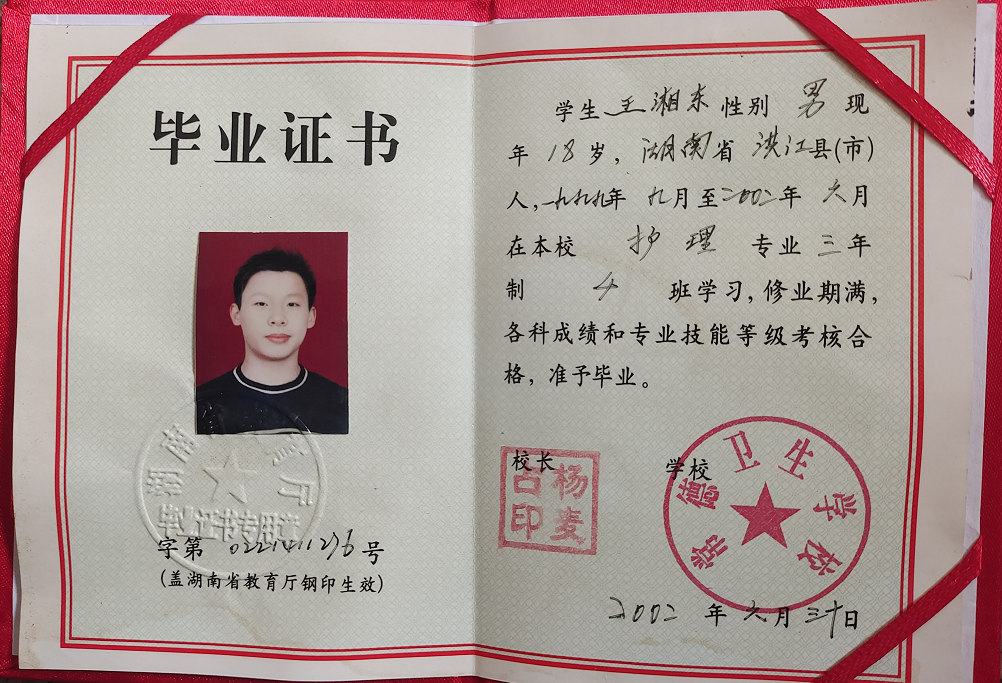 毕业证书
湖南省教育厅
毕业证书专用章
字第 0221411276 号
(盖湖南省教育厅钢印生效)
学生 王湘东 性别 男 现
年 18 岁, 湖南省 洪江县(市)
人, 一九九九年 九月至二00二年 六月
在本校 护理 专业 三年
制 4 班学习, 修业期满,
各科成绩和专业技能等级考核合
格, 准予毕业。
校长
杨麦占印
学校
常德卫生学校
二00二 年 六月 三十日